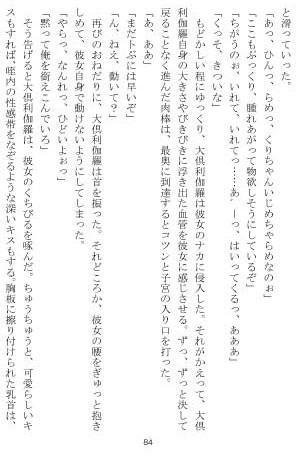 と滑っていった。
「あっ、ひんっ、らめっ、くりちゃんいじめちゃらめなのぉ」
「ここもぷっくり、腫れあがって物欲しそうにしているぞ」
「ちがうのぉ、いれて、いれてっ……あ゛ーっ、はいってくるっ、あああ」
「くっそ、きついな」
もどかしい程にゆっくり、大倶利伽羅は彼女のナカに侵入した。それがかえって、大倶
利伽羅自身の大きさやびきびきに浮き出た血管を彼女に感じさせる。ずっ、ずっと決して
戻ることなく進んだ肉棒は、最奥に到達するとコツンと子宮の入り口を打った。
「あ、ああ」
「まだトぶには早いぞ」
「ん、ねえ、動いてぇ？」
再びのおねだりに、大倶利伽羅は首を振った。それどころか、彼女の腰をぎゅっと抱き
しめて、彼女自身で動けないようにしてしまった。
「やらっ、なんれっ、ひどいよぉっ」
「黙って俺を銜えこんでいろ」
そう告げると大倶利伽羅は、彼女のくちびるを啄んだ。ちゅうちゅうと、可愛らしいキ
スもすれば、咥内の性感帯をなぞるような深いキスもする。胸板に擦り付けられた乳首は、
84